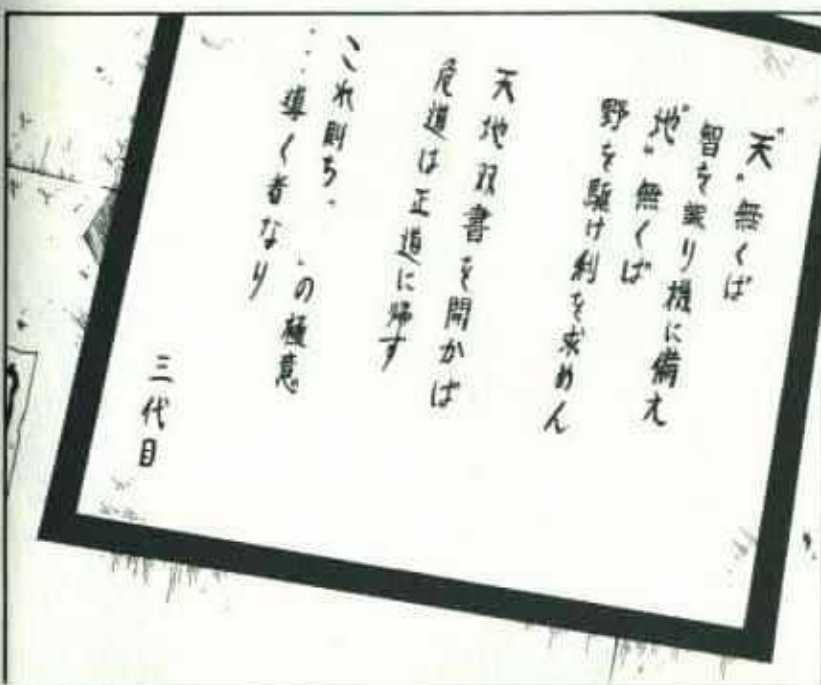 "天"無くば
智を識り機に備え
"地"無くば
野を駆け利を求めん
天地双書を開かば
危道は正道に帰す
これ則ち、
の極意
…導く者なり
三代目